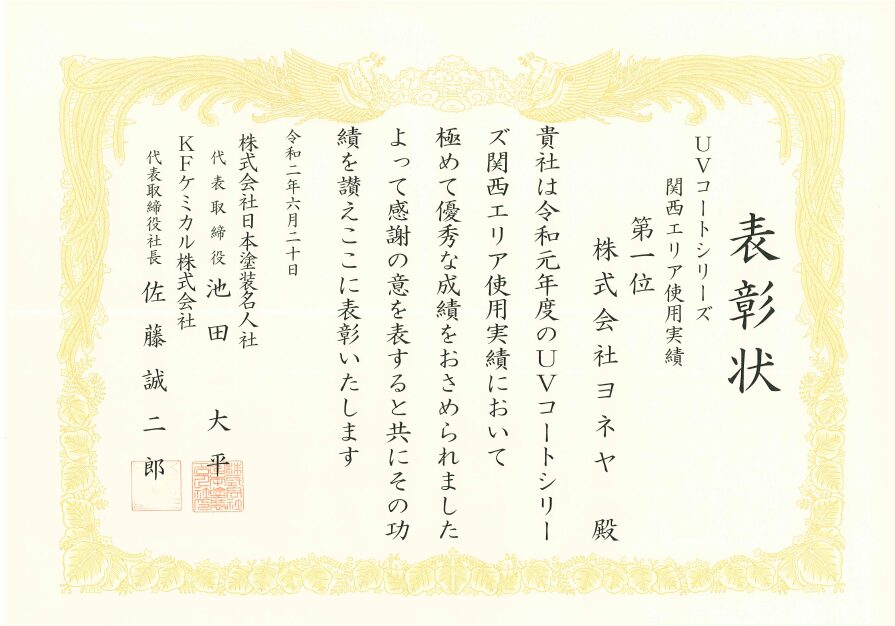 表彰状
UVコートシリーズ
関西エリア使用実績
第一位
株式会社ヨネヤ 殿
貴社は令和元年度のUVコートシリー
ズ関西エリア使用実績において
極めて優秀な成績をおさめられました
よって感謝の意を表すると共にその功
績を讃えここに表彰いたします
令和二年六月二十日
株式会社日本塗装名人社
代表取締役 池田 大平
KFケミカル株式会社
代表取締役社長 佐藤誠二郎